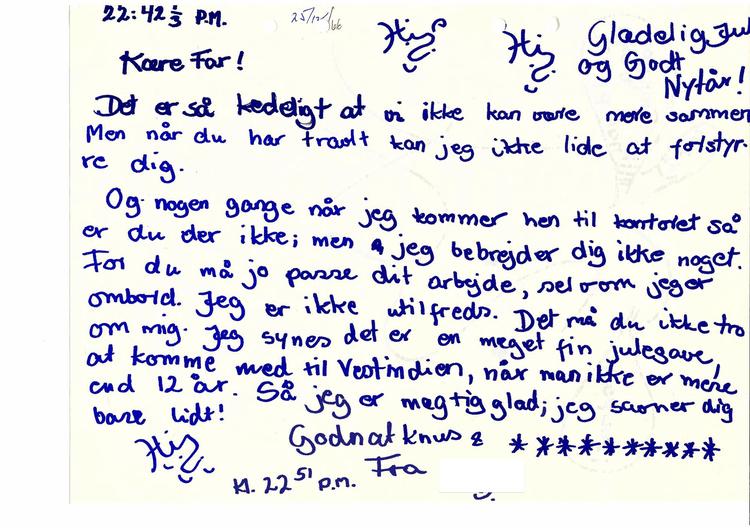 22:42½ P.M.
25/12/66
His His Glædelig Jul
og Godt
Nytår!
Kære Far!
Det er så kedeligt at vi ikke kan være mere sammen
Men når du har travlt kan jeg ikke lide at forstyr-
re dig.
Og nogen gange når jeg kommer hen til kontoret så
er du der ikke; men jeg bebrejder dig ikke noget.
For du må jo passe dit arbejde, selvom jeg er
ombord. Jeg er ikke utilfreds. Det må du ikke tro
om mig. Jeg synes det er en meget fin julegave,
at komme med til Vestindien, når man ikke er mere
end 12 år. Så jeg er mægtig glad; jeg savner dig
bare lidt!
His
Godnat knus & **********
Kl. 22 51 P.m. Fra